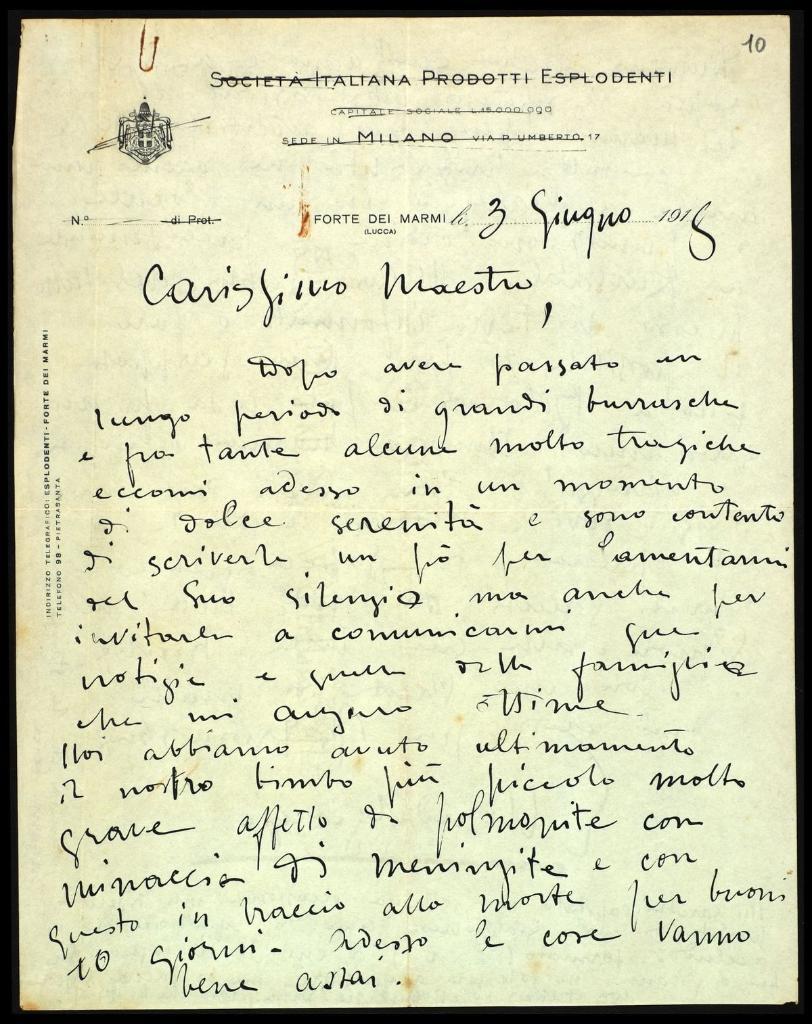 10
SOCIETÀ ITALIANA PRODOTTI ESPLODENTI
CAPITALE SOCIALE L.15.000.000
SEDE IN MILANO VIA P. UMBERTO, 17
N.º di Prot.
FORTE DEI MARMI li 3 Giugno 1918
(LUCCA)
INDIRIZZO TELEGRAFICO: ESPLODENTI - FORTE DEI MARMI
TELEFONO 98 - PIETRASANTA
Carissimo Maestro,
Dopo avere passato un
lungo periodo di grandi burrasche
e fra tante alcune molto tragiche
eccomi adesso in un momento
di dolce serenità e sono contento
di scriverle un pò per lamentarmi
del Suo silenzio ma anche per
invitarla a comunicarmi sue
notizie e quelle della famiglia
che mi auguro ottime
Noi abbiamo avuto ultimamente
il nostro bimbo più piccolo molto
grave affetto da polmonite con
minaccia di meningite e con
questo in braccio alla morte per buoni
10 giorni - Adesso le cose vanno
bene assai.